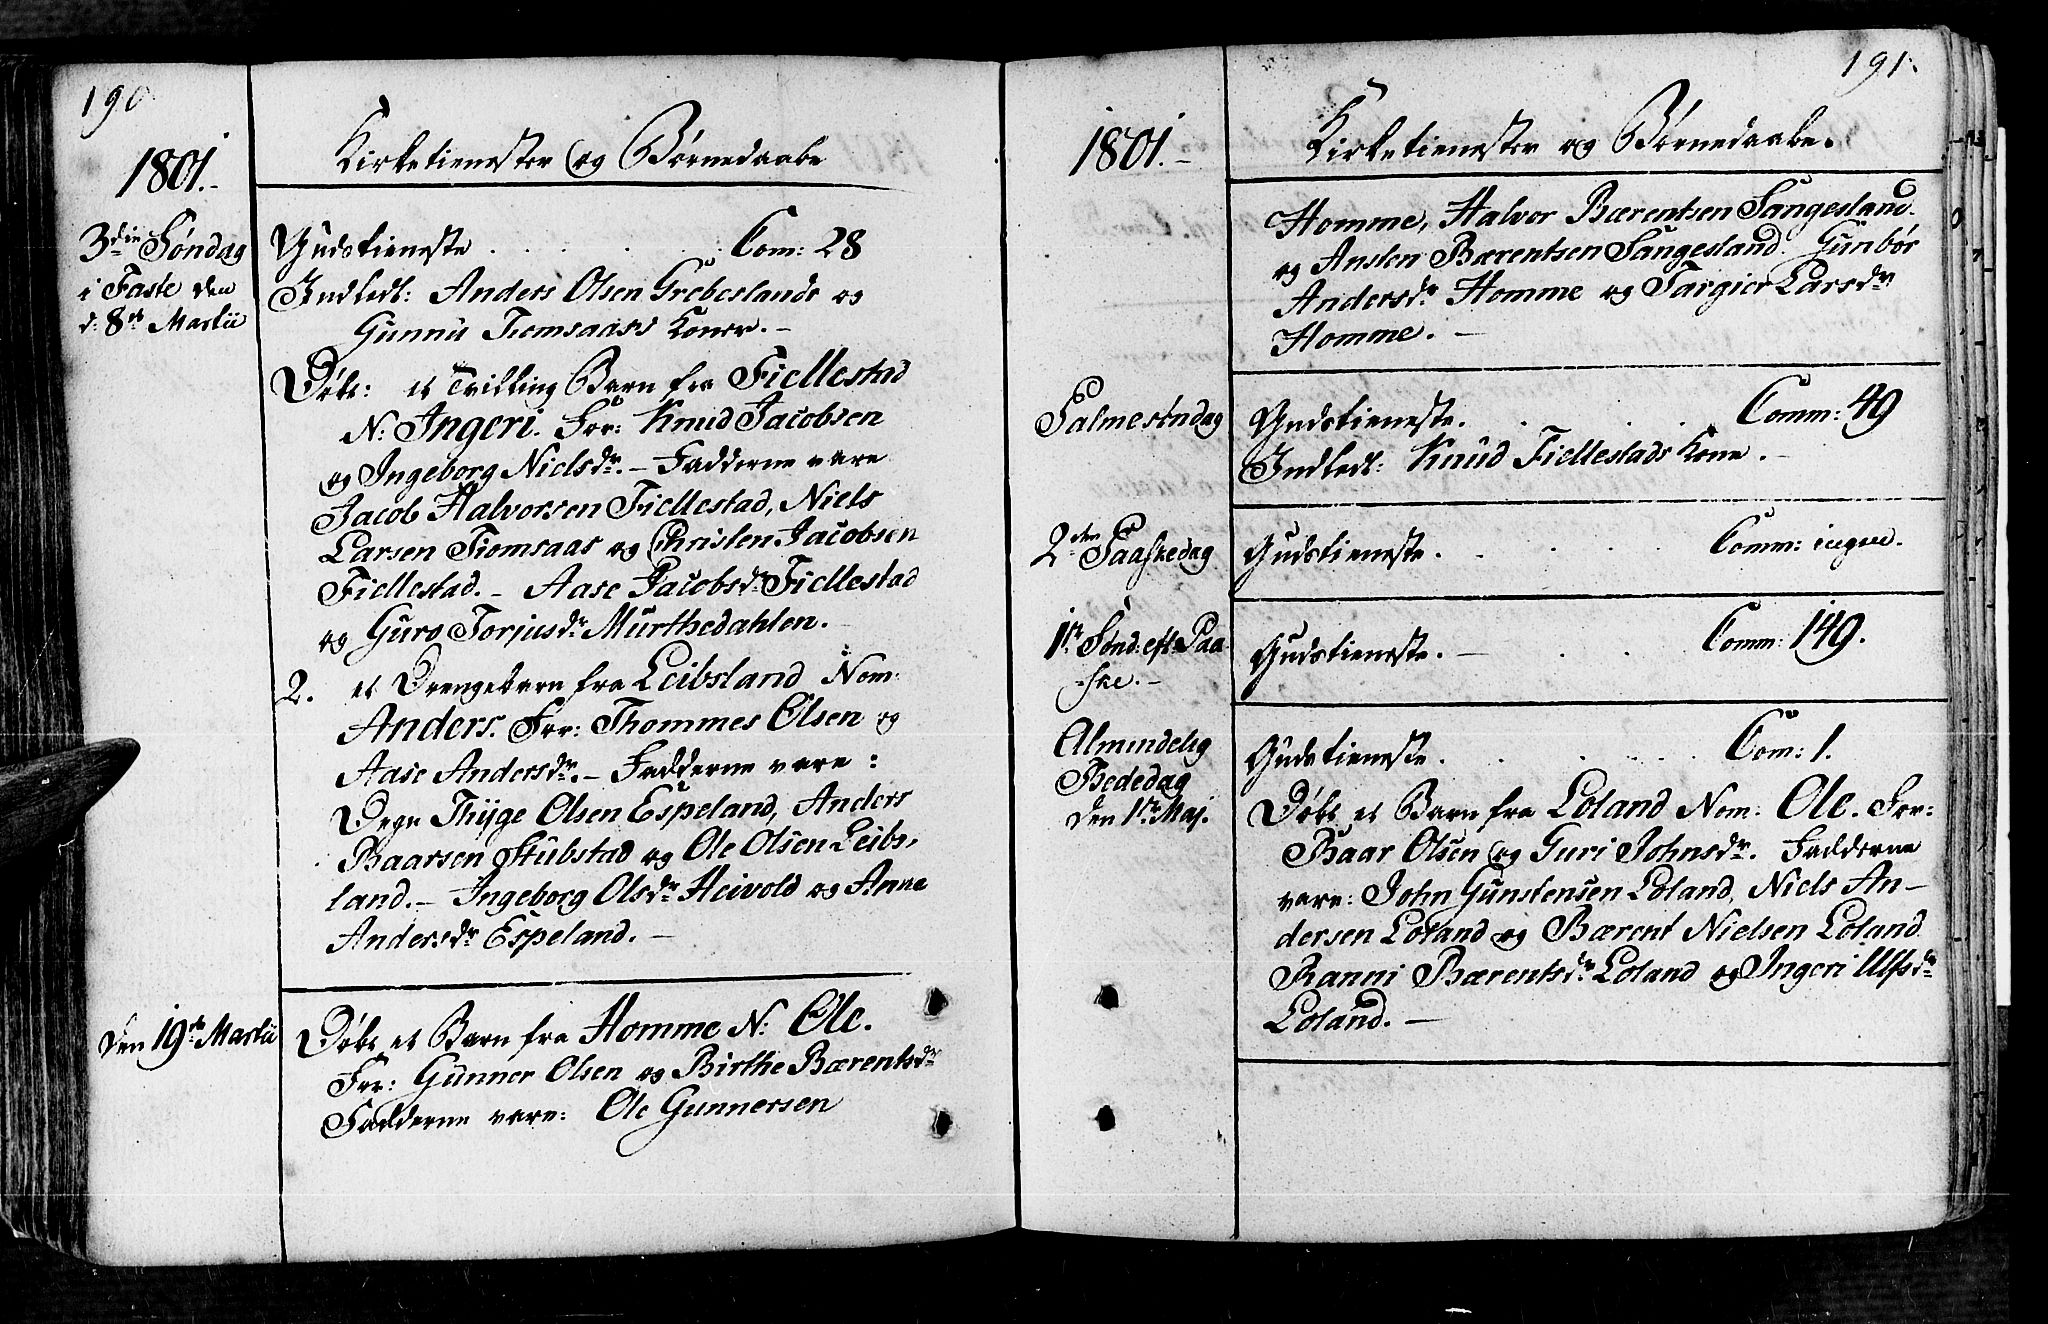 190
1801.-
Kirketienester og Børnedaabe
3die Søndag
i Faste den
d: 8de Martii
Gudstieneste . . . . . Com: 28
Indledt: Anders Olsen Grebeslands og
Gunnu Tiomsaass Koner.-
Døbt: et Tvilling Barn fra Fiellestad
N: Ingeri. For: Knud Jacobsen
og Ingeborg Nielsdr.- Fadderne vare
Jacob Halvorsen Fiellestad, Niels
Larsen Tiomsaas og Christen Jacobsen
Fiellestad.- Aase Jacobsdr Fiellestad
og Guro Torjusdr Murthedahlen.
2. et Drengebarn fra Leibsland Nom:
Anders. For: Thommes Olsen og
Aase Andersdr.- Fadderne vare:
Degn Thÿge Olsen Espeland, Anders
Baarsen Stubstad og Ole Olsen Leibs,
land.- Ingeborg Olsdr Heivold og Anne
Andersdr Espeland.-
den 19de Martii
Døbt et Barn fra Homme N: Ole.
For: Gunner Olsen og Birthe Bærentsdr
Fadderne vare: Ole Gunnersen
191.
1801.-
Kirketienester og Børnedaabe.
Homme, Halvor Bærentsen Sangesland.
og Ansten Bærentsen Sangesland. Gunbør
Andersdr Homme og Targier Larsdr
Homme.-
Palmesøndag
Gudstieneste. . . . Comm: 49
Indledt: Knud Fiellestads Kone.-
2den Paaskedag
Gudstieneste. . . . . Comm: ingen.
1ste Sønd: eft: Paa
-ske.-
Gudstieneste.- . . . Comm: 149.
Almindelig
Bededag
den 1ste Maj.
Gudstieneste. . . . . . Com: 1.
Døbt et Barn fra Loland Nom: Ole. For:
Baar Olsen og Guri Johnsdr. Fadderne
vare: John Gunstensen Loland, Niels An-
dersen Loland og Bærent Nielsen Loland
Ranni Bærentsdr Loland og Ingeri Ulfsdr
Loland.-